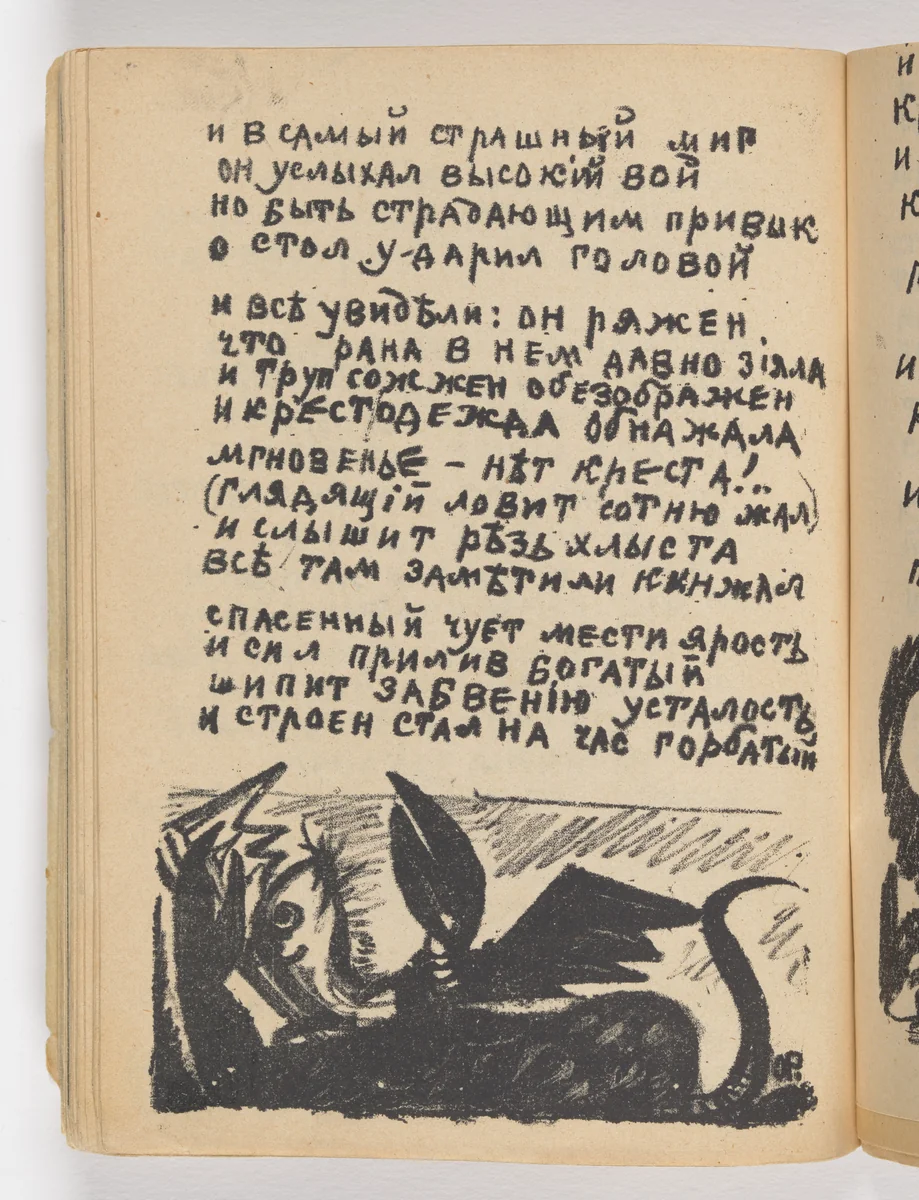 и в самый страшный миг
он услыхал высокій вой
но быть страдающим привык
о стол у-дарил головой
и всѣ увидѣли: он ряжен
что рана в нем давно зіяла
и труп сожжен обезображен
и крестодежда обнажала
мгновенье – нѣт креста!..
(глядящій ловит сотню жал)
и слышит рѣзь хлыста
всѣ там замѣтили кинжал
спасенный чует мести ярость
и сил прилив богатый
шипит забвенію усталость
и строен стал на час горбатый
ОР.